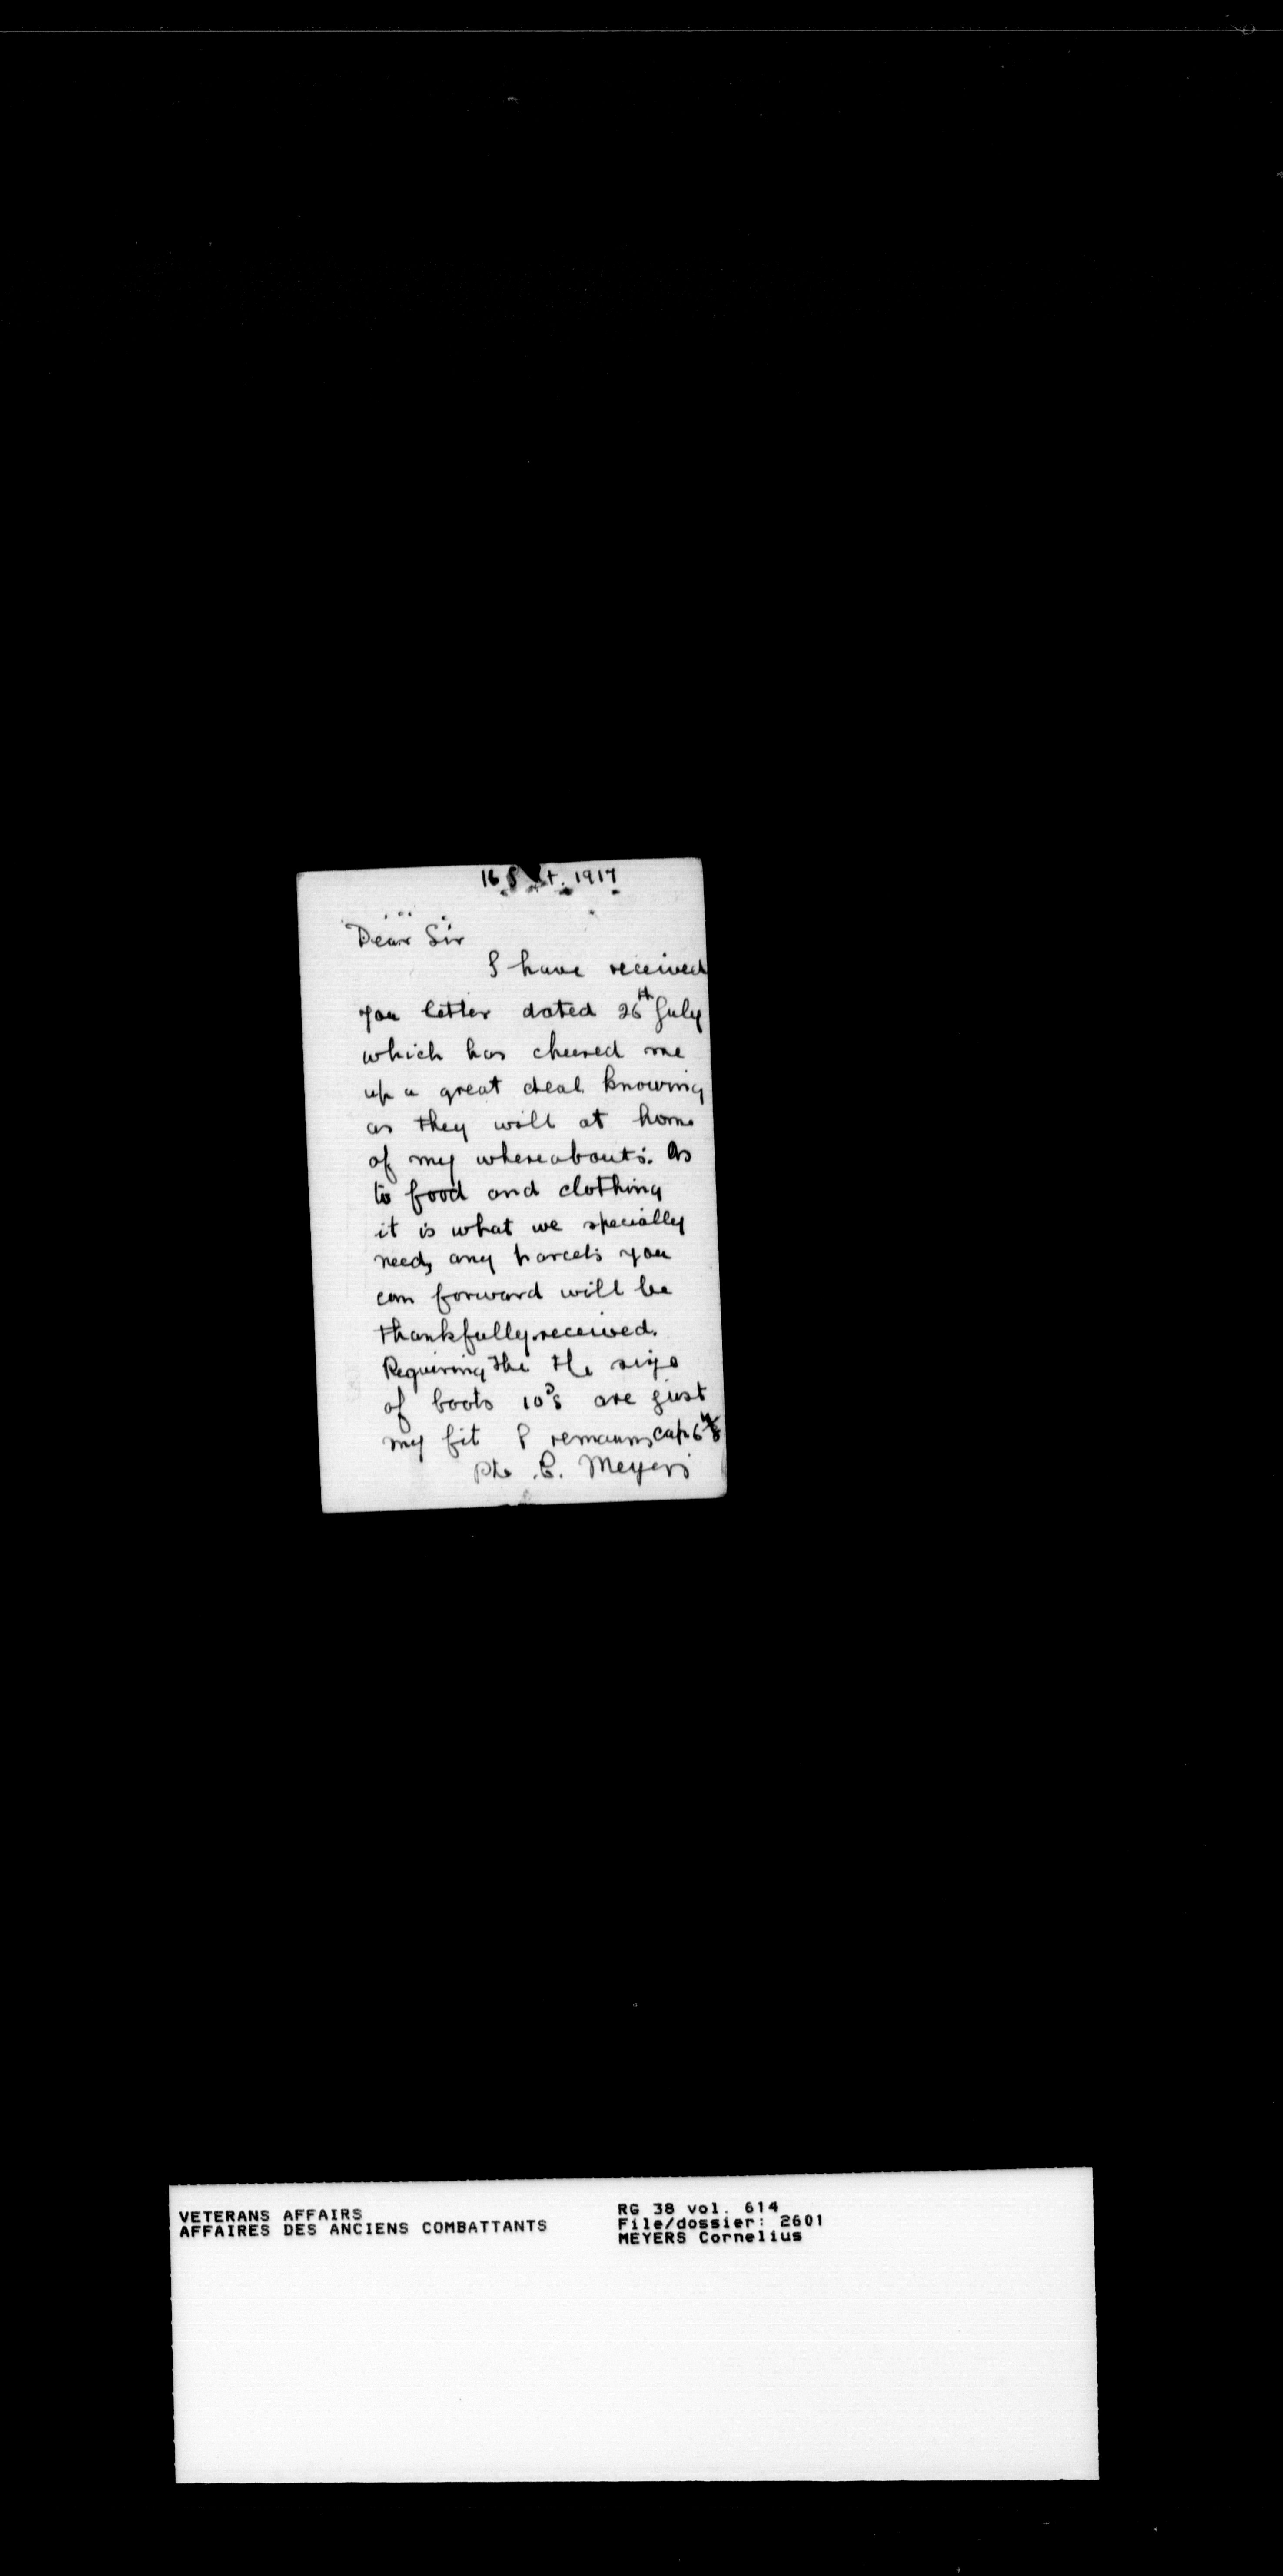 16 Sept. 1917
Dear Sir
I have received
you letter dated 26th July
which has cheered me
up a great deal knowing
as they will at home
of my whereabouts. As
to food and clothing
it is what we specially
need, any parcels you
can forward will be
thankfully received.
Requiring the the size
of boots 10s are just
my fit I remains cap 6
Pte C. Meyers
VETERANS AFFAIRS
AFFAIRES DES ANCIENS COMBATTANTS
RG 38 vol. 614
File/dossier: 2601
MEYERS Cornelius